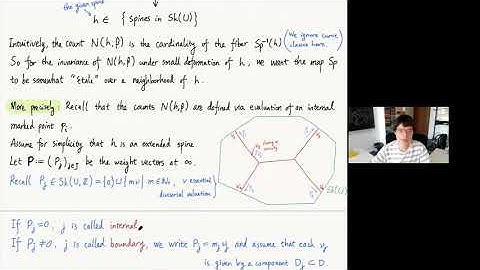 the given spine
h ∈ { spines in Sk(U) }
Intuitively, the count N(h,β) is the cardinality of the fiber Sp⁻¹(h) (We ignore curve classes here.)
So for the invariance of N(h,β) under small deformation of h, we want the map Sp
to be somewhat "étale" over a neighborhood of h.
More precisely: Recall that the counts N(h,β) are defined via evaluation of an internal
marked point Pᵢ.
Assume for simplicity that h is an extended spine.
Let P := (Pⱼ)ⱼ∈J be the weight vectors at ∞.
Recall Pⱼ ∈ Sk(U,Z) = {0} ⊔ { mν | m ∈ N₊, ν essential
divisorial valuation
Sk(U)
If Pⱼ=0, j is called internal.
If Pⱼ≠0, j is called boundary, we write Pⱼ = mⱼνⱼ and assume that each νⱼ
is given by a component Dⱼ ⊂ D.